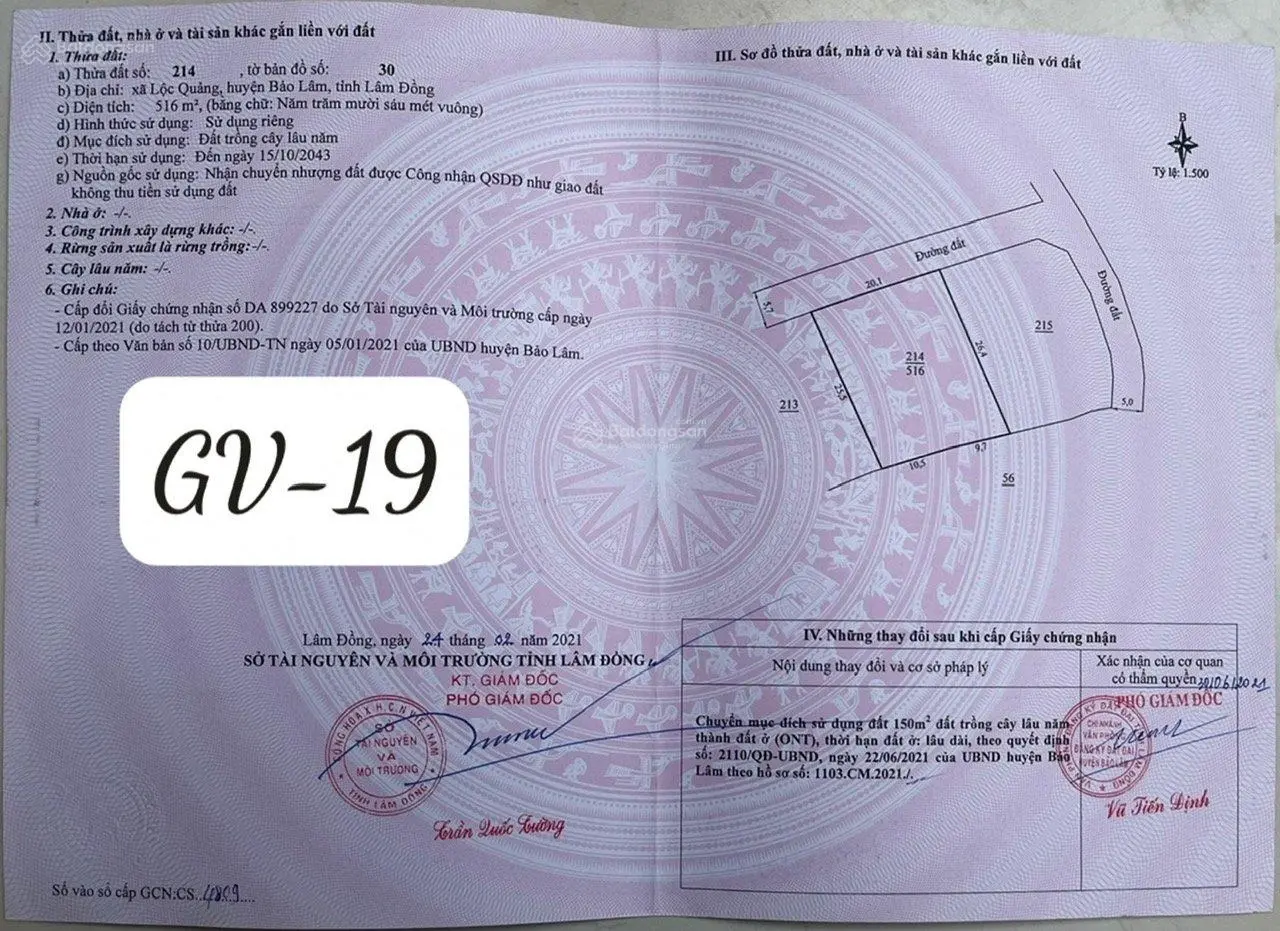 II. Thửa đất, nhà ở và tài sản khác gắn liền với đất
1. Thửa đất:
a) Thửa đất số: 214 , tờ bản đồ số: 30
b) Địa chỉ: xã Lộc Quảng, huyện Bảo Lâm, tỉnh Lâm Đồng
c) Diện tích: 516 m², (bằng chữ: Năm trăm mười sáu mét vuông)
d) Hình thức sử dụng: Sử dụng riêng
đ) Mục đích sử dụng: Đất trồng cây lâu năm
e) Thời hạn sử dụng: Đến ngày 15/10/2043
g) Nguồn gốc sử dụng: Nhận chuyển nhượng đất được Công nhận QSDĐ như giao đất
không thu tiền sử dụng đất
2. Nhà ở: -/-.
3. Công trình xây dựng khác: -/-.
4. Rừng sản xuất là rừng trồng:-/-.
5. Cây lâu năm: -/-.
6. Ghi chú:
- Cấp đổi Giấy chứng nhận số DA 899227 do Sở Tài nguyên và Môi trường cấp ngày
12/01/2021 (do tách từ thửa 200).
- Cấp theo Văn bản số 10/UBND-TN ngày 05/01/2021 của UBND huyện Bảo Lâm.
GV-19
Lâm Đồng, ngày 24 tháng 02 năm 2021
SỞ TÀI NGUYÊN VÀ MÔI TRƯỜNG TỈNH LÂM ĐỒNG
KT. GIÁM ĐỐC
PHÓ GIÁM ĐỐC
CỘNG HÒA X.H.C.N VIỆT NAM
SỞ
TÀI NGUYÊN
VÀ
MÔI TRƯỜNG
TỈNH LÂM ĐỒNG
Trần Quốc Cường
Số vào sổ cấp GCN:CS..4809....
III. Sơ đồ thửa đất, nhà ở và tài sản khác gắn liền với đất
B
Tỷ lệ: 1.500
Đường đất
Đường đất
20,1
5,7
215
26,4
214
516
25,5
213
5,0
9,7
10,5
56
Batdongsan
.com.vn
Batdongsan
IV. Những thay đổi sau khi cấp Giấy chứng nhận
Nội dung thay đổi và cơ sở pháp lý
Xác nhận của cơ quan
có thẩm quyền
30/06/2021
Chuyển mục đích sử dụng đất 150m² đất trồng cây lâu năm
thành đất ở (ONT), thời hạn đất ở: lâu dài, theo quyết định
số: 2110/QĐ-UBND, ngày 22/06/2021 của UBND huyện Bảo
Lâm theo hồ sơ số: 1103.CM.2021./.
PHÓ GIÁM ĐỐC
CHI NHÁNH
VĂN PHÒNG
ĐĂNG KÝ ĐẤT ĐAI
HUYỆN BẢO LÂM
Vũ Tiến Định